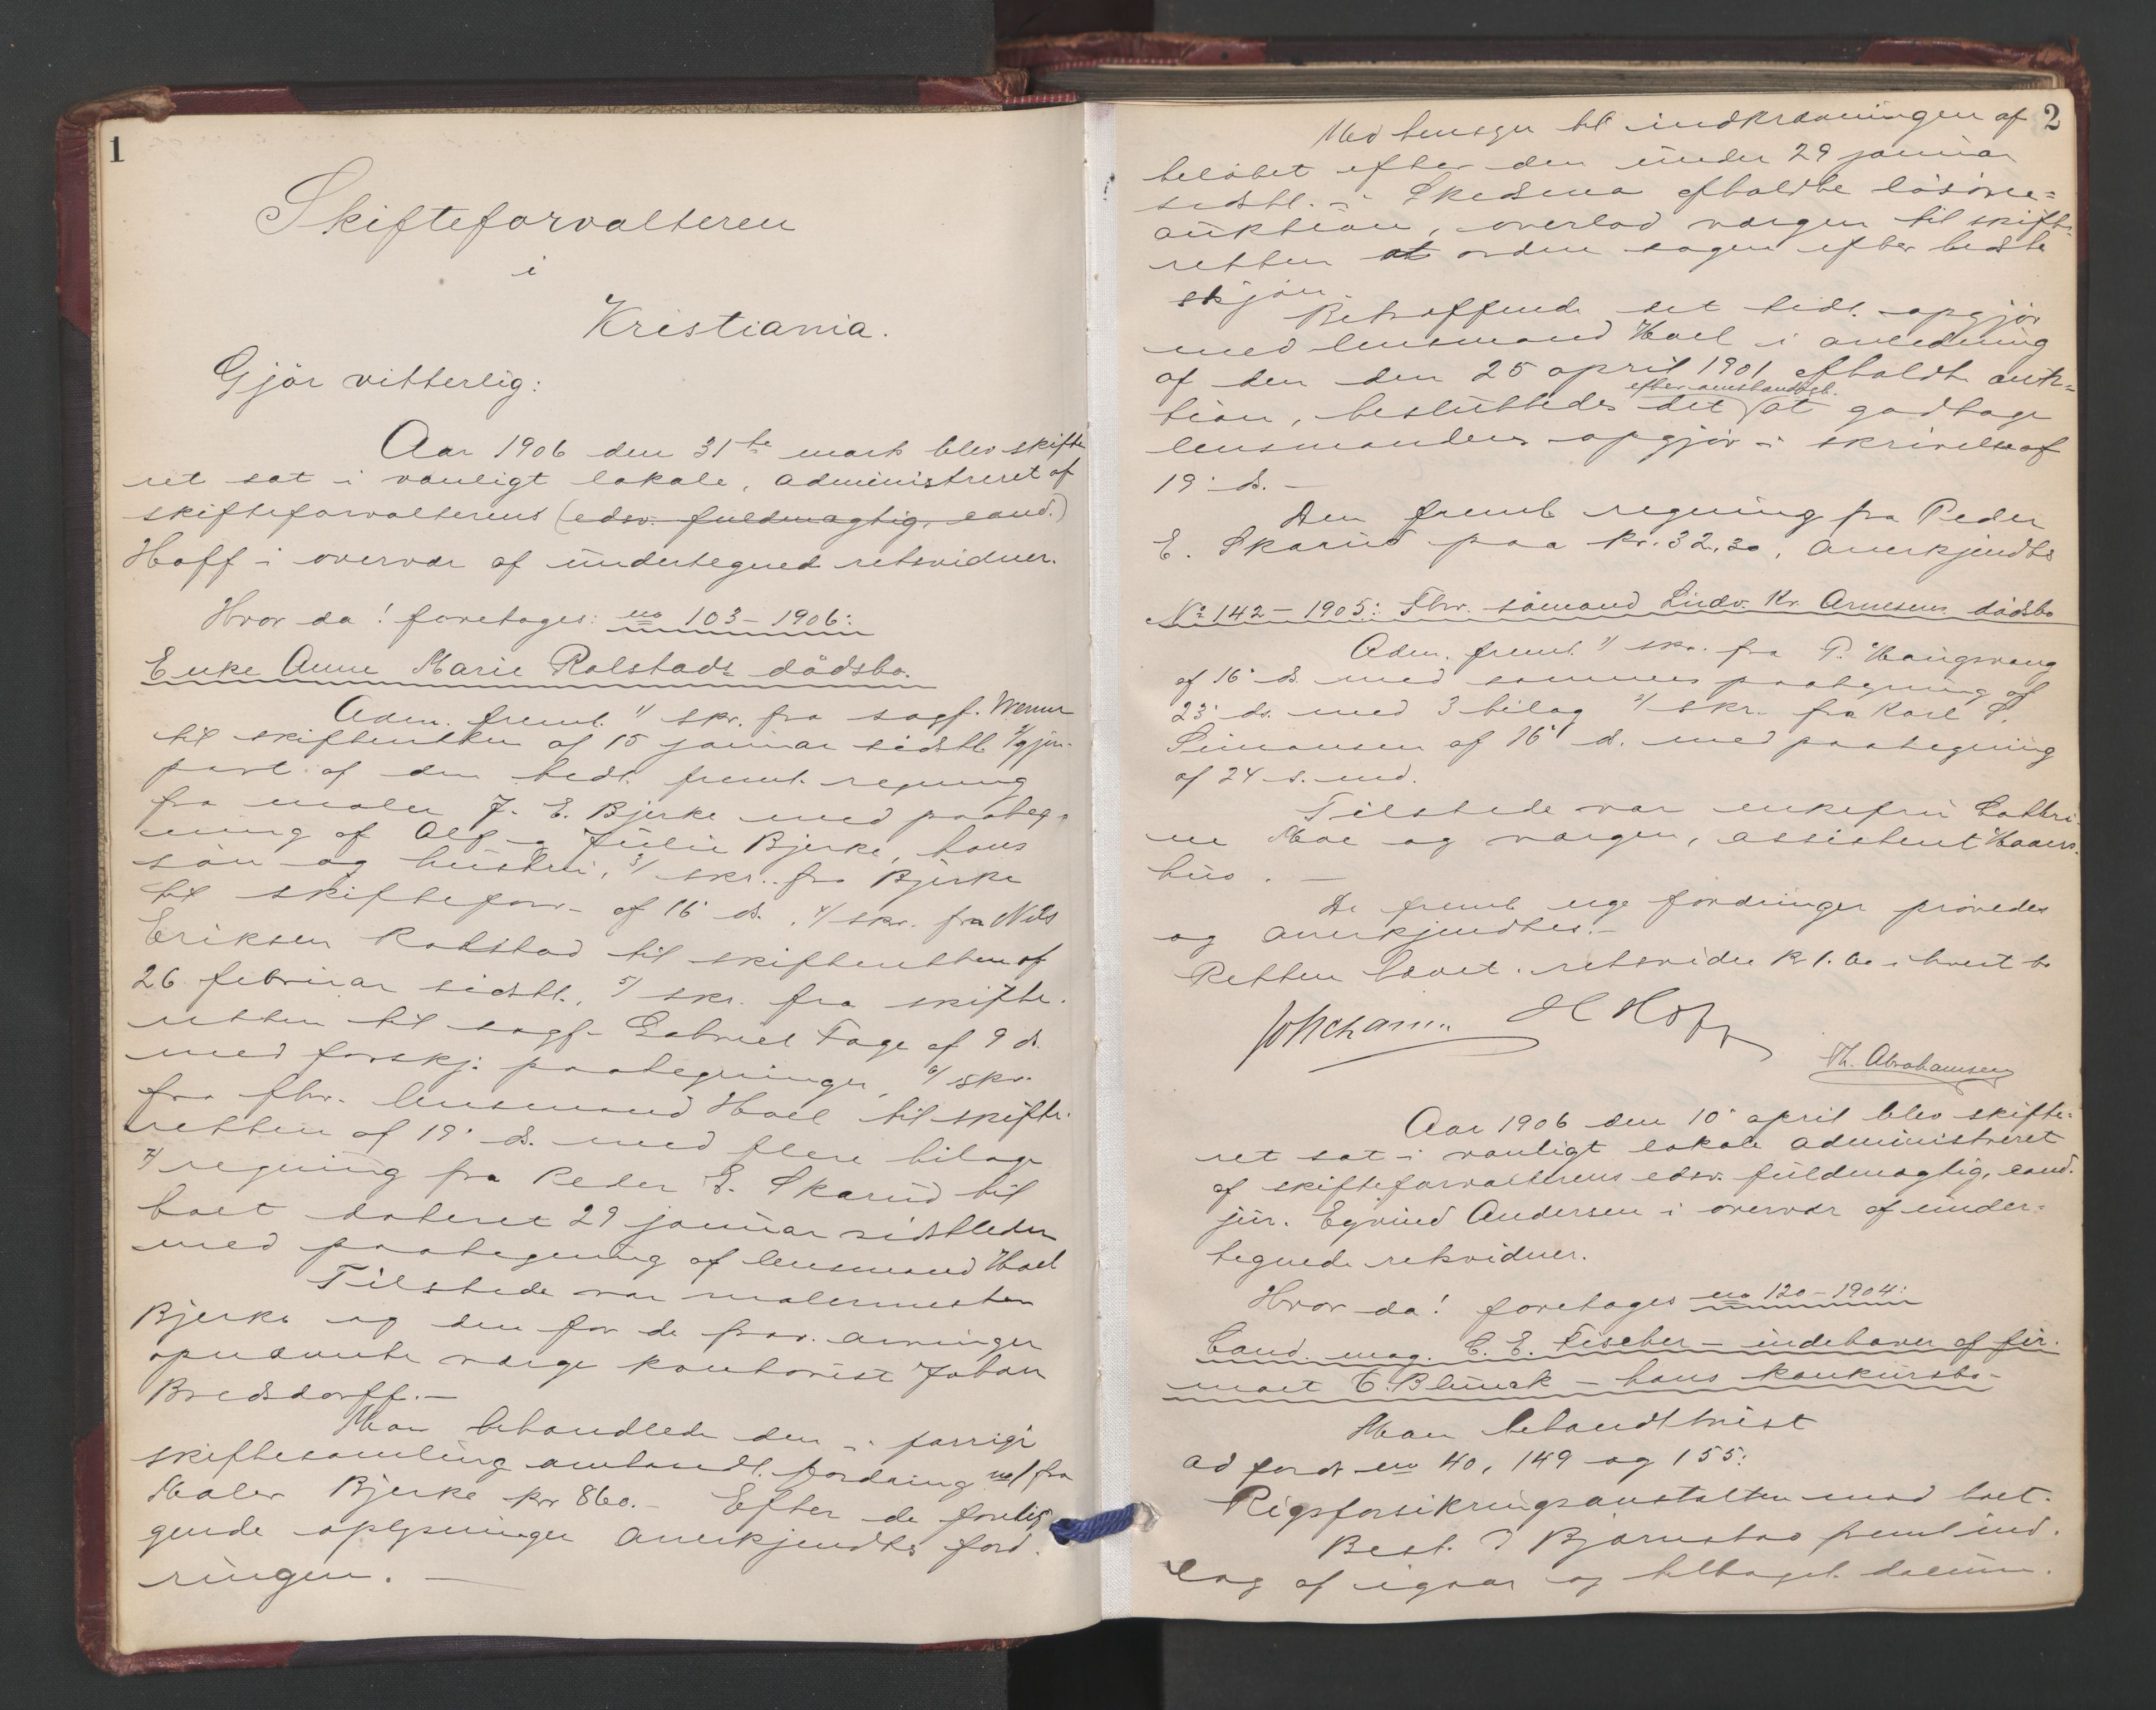 1
Skifteforvalteren
i
Kristiania.
Gjör vitterlig:
Aar 1906 den 31te marts blev skifte
ret sat i vanligt lokale, administreret af
skifteforvalterens (edsv. fuldmægtig, cand.)
Hoff i overvær af undertegnede retsvidner.
Hvor da! foretages: no 103-1906:
Enke Anne Marie Rolstads dödsbo.
Adm. freml. 1/ skr. fra sagf.
til skifteretten af 15 januar sidstl. 2/ gjen-
part af den tidl. freml. regning
fra maler J. E. Bjerke med paateg-
ning af Alf og Julie Bjerke, hans
sön og hustru, 3/ skr. fra Bjerke
til skifteforv. af 16' ds. 4/ skr. fra Nils
Eriksen Rolstad til skifteretten af
26 februar sidstl., 5/ skr. fra skifte-
retten til sagf. Gabriel Fage af 9 ds.
med forskj. paategninger, 6/ skr.
fra fhv. lensmand Hoel til skifte-
retten af 19' ds. med flere bilag
7/ regning fra Peder E. Skarud til
boet dateret 29 januar sidstleden
med paategning af lensmand Hoel
Tilstede var malermester
Bjerke og den for de frav. arvinger
opnævnte værge kontorist Johan
Bredsdorff.-
Man behandlede den i forrige
skiftesamling omhandl. fordring no 1 fra
Maler Bjerke kr 860.- Efter de forelig-
gende oplysninger anerkjendtes ford-
ringen. -
2
Med hensyn til indkrævningen af
belöbet efter den under 29 januar
sidstl. i Skedsmo afholdte lösöre-
auktion, overlod værgen til skifte-
retten at ordne sagen efter bedste
skjön.
Betræffende det tidl. opgjör
med lensmand Hoel i anledning
af den den 25 april 1901 afholdte auk-
efter omstændigh.
tion, besluttedes det at godtage
lensmandens opgjör i skrivelse af
19' ds. -
Den freml. regning fra Peder
E. Skarud paa kr. 32,30, anerkjendtes
No 142-1905: Fhv. sömand Ludv. Kr. Arnesens dödsbo
Adm. freml. 1/ skr. fra P. Haugsvang
af 16' ds. med sammes paategning af
23' ds. med 3 bilag 2/ skr. fra Karl S.
Simonsen af 16' ds. med paategning
af 24 s. md.
Tilstede var enkefru Cathri-
ne Moe og værgen, assistent
De freml. nye fordringer prövedes
og anerkjendtes.-
Retten hævet. retsvidne kr 1.00 i hvert bo
H Hoff
Th. Abrahamsen
Aar 1906 den 10' april blev skifte-
ret sat i vanligt lokale administreret
af skifteforvalterens edsv. fuldmægtig, cand.
jur. Eyvind Andersen i overvær af under-
tegnede retsvidner.
Hvor da! foretages no 120-1904:
Cand. mag. C. E. Fischer - indehaver af fir-
maet C. Blunck - hans konkursbo-
Man behandl. tvist
ad ford. no 40, 149 og 155:
Rigsforsikringsanstalten mod boet.
Best. Bjørnstad freml. ind-
læg af igaar og tiltaget docum.